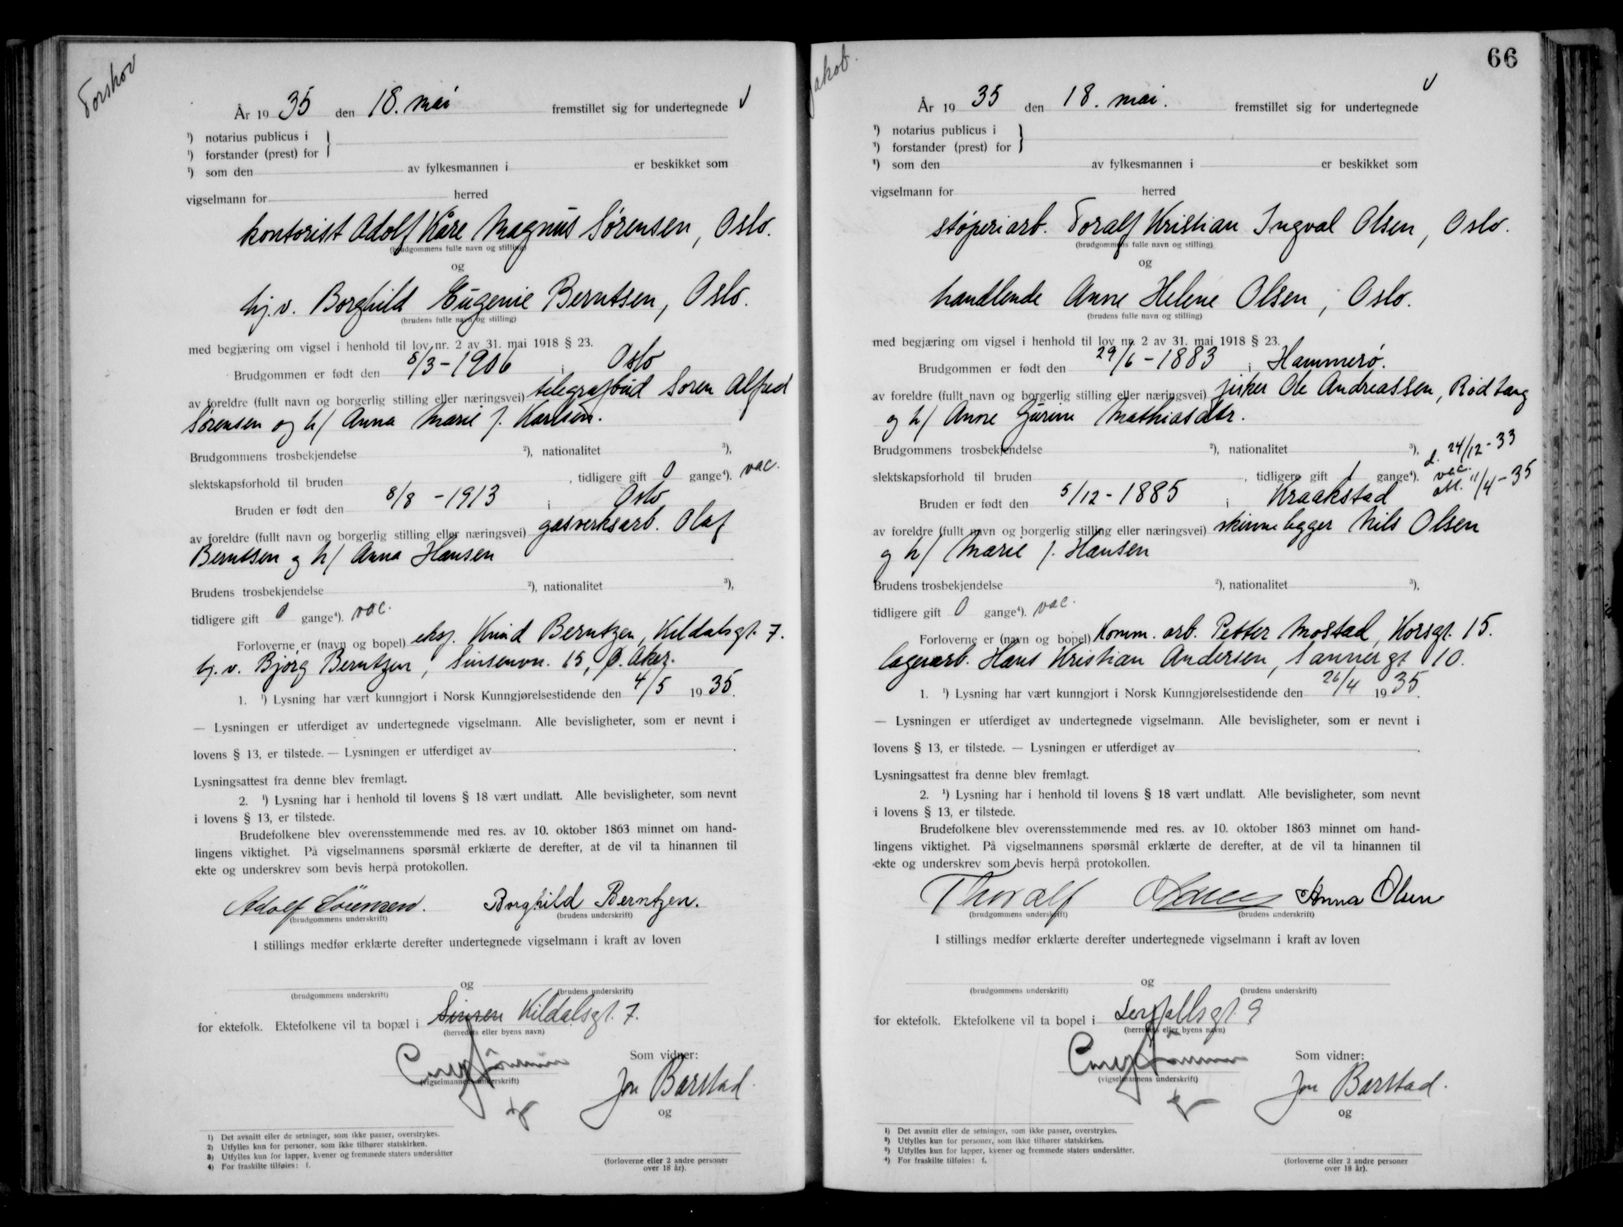 Torshov
År 1935 den 18. mai fremstillet sig for undertegnede
¹) notarius publicus i
¹) forstander (prest) for
¹) som den av fylkesmannen i er beskikket som
vigselmann for herred
kontorist Adolf Kåre Magnus Sørensen, Oslo.
(brudgommens fulle navn og stilling)
og
hj.v. Borghild Eugenie Berntsen, Oslo.
(brudens fulle navn og stilling)
med begjæring om vigsel i henhold til lov nr. 2 av 31. mai 1918 § 23.
Brudgommen er født den 5/3-1906 i Oslo
av foreldre (fullt navn og borgerlig stilling eller næringsvei) telegrafbud Soren Alfred
Sørensen og h/ Anna Marie f. Karlsen.
Brudgommens trosbekjendelse ²), nationalitet ³),
slektskapsforhold til bruden , tidligere gift 0 gange⁴). vac.
Bruden er født den 8/8 -1913 i Oslo
av foreldre (fullt navn og borgerlig stilling eller næringsvei) gasverksarb. Olaf
Berntsen og h/ Anna Hansen
Brudens trosbekjendelse ²), nationalitet ³),
tidligere gift 0 gange⁴). vac.
Forloverne er (navn og bopel) eksp. Knud Berntzen, Kildalsgt. 7.
hj.v. Bjørg Berntzen, Sinsenvn. 15, Ø. Aker.
1. ¹) Lysning har vært kunngjort i Norsk Kunngjørelsestidende den 4/5 1935.
— Lysningen er utferdiget av undertegnede vigselmann. Alle bevisligheter, som er nevnt i
lovens § 13, er tilstede. — Lysningen er utferdiget av .
Lysningsattest fra denne blev fremlagt.
2. ¹) Lysning har i henhold til lovens § 18 vært undlatt. Alle bevisligheter, som nevnt
i lovens § 13, er tilstede.
Brudefolkene blev overensstemmende med res. av 10. oktober 1863 minnet om hand-
lingens viktighet. På vigselmannens spørsmål erklærte de derefter, at de vil ta hinannen til
ekte og underskrev som bevis herpå protokollen.
Adolf Sörensen. Borghild Berntzen.
(brudgommens underskrift) (brudens underskrift)
I stillings medfør erklærte derefter undertegnede vigselmann i kraft av loven
og
(brudgommens underskrift) (brudens underskrift)
for ektefolk. Ektefolkene vil ta bopæl i Sinsen Kildalsgt. 7.
(herredets eller byens navn)
Som vidner:
(vigselmannens underskrift)
Jon Barstad
og
1) Det avsnitt eller de setninger, som ikke passer, overstrykes.
2) Utfylles kun for personer, som ikke tilhører statskirken.
3) Utfylles kun for lapper, kvener og fremmede staters undersåtter
4) For fraskilte tilføies: f.
(forloverne eller 2 andre personer
over 18 år).
Jakob.
66
År 1935 den 18. mai. fremstillet sig for undertegnede
¹) notarius publicus i
¹) forstander (prest) for
¹) som den av fylkesmannen i er beskikket som
vigselmann for herred
støperiarb. Toralf Kristian Ingval Olsen, Oslo.
(brudgommens fulle navn og stilling)
og
handlende Anne Helene Olsen, Oslo.
(brudens fulle navn og stilling)
med begjæring om vigsel i henhold til lov nr. 2 av 31. mai 1918 § 23.
Brudgommen er født den 29/6-1883 i Hammerø.
av foreldre (fullt navn og borgerlig stilling eller næringsvei) fisker Ole Andreassen, Rødtang
og h/ Anne Gurine Mathiasdtr.
Brudgommens trosbekjendelse ²), nationalitet ³), d. 24/12-33
slektskapsforhold til bruden , tidligere gift 1 gange⁴). vac.
att. 11/4-35
Bruden er født den 5/12-1885 i Kraakstad
av foreldre (fullt navn og borgerlig stilling eller næringsvei) skinnelegger Nils Olsen
og h/ Marie f. Hansen
Brudens trosbekjendelse ²), nationalitet ³),
tidligere gift 0 gange⁴). vac.
Forloverne er (navn og bopel) Komm. arb. Petter Mostad, Korsgt. 15.
lagerarb. Hans Kristian Andersen, Sannergt 10.
1. ¹) Lysning har vært kunngjort i Norsk Kunngjørelsestidende den 26/4 1935.
— Lysningen er utferdiget av undertegnede vigselmann. Alle bevisligheter, som er nevnt i
lovens § 13, er tilstede. — Lysningen er utferdiget av .
Lysningsattest fra denne blev fremlagt.
2. ¹) Lysning har i henhold til lovens § 18 vært undlatt. Alle bevisligheter, som nevnt
i lovens § 13, er tilstede.
Brudefolkene blev overensstemmende med res. av 10. oktober 1863 minnet om hand-
lingens viktighet. På vigselmannens spørsmål erklærte de derefter, at de vil ta hinannen til
ekte og underskrev som bevis herpå protokollen.
Thoralf Olsen Anna Olsen
(brudgommens underskrift) (brudens underskrift)
I stillings medfør erklærte derefter undertegnede vigselmann i kraft av loven
og
(brudgommens underskrift) (brudens underskrift)
for ektefolk. Ektefolkene vil ta bopel i 9
(herredets eller byens navn)
Som vidner:
(vigselmannens underskrift)
Jon Barstad.
og
¹) Det avsnitt eller de setninger, som ikke passer, overstrykes.
²) Utfylles kun for personer, som ikke tilhører statskirken.
³) Utfylles kun for lapper, kvener og fremmede staters undersåtter.
⁴) For fraskilte tilføies: f.
(forloverne eller 2 andre personer
over 18 år).